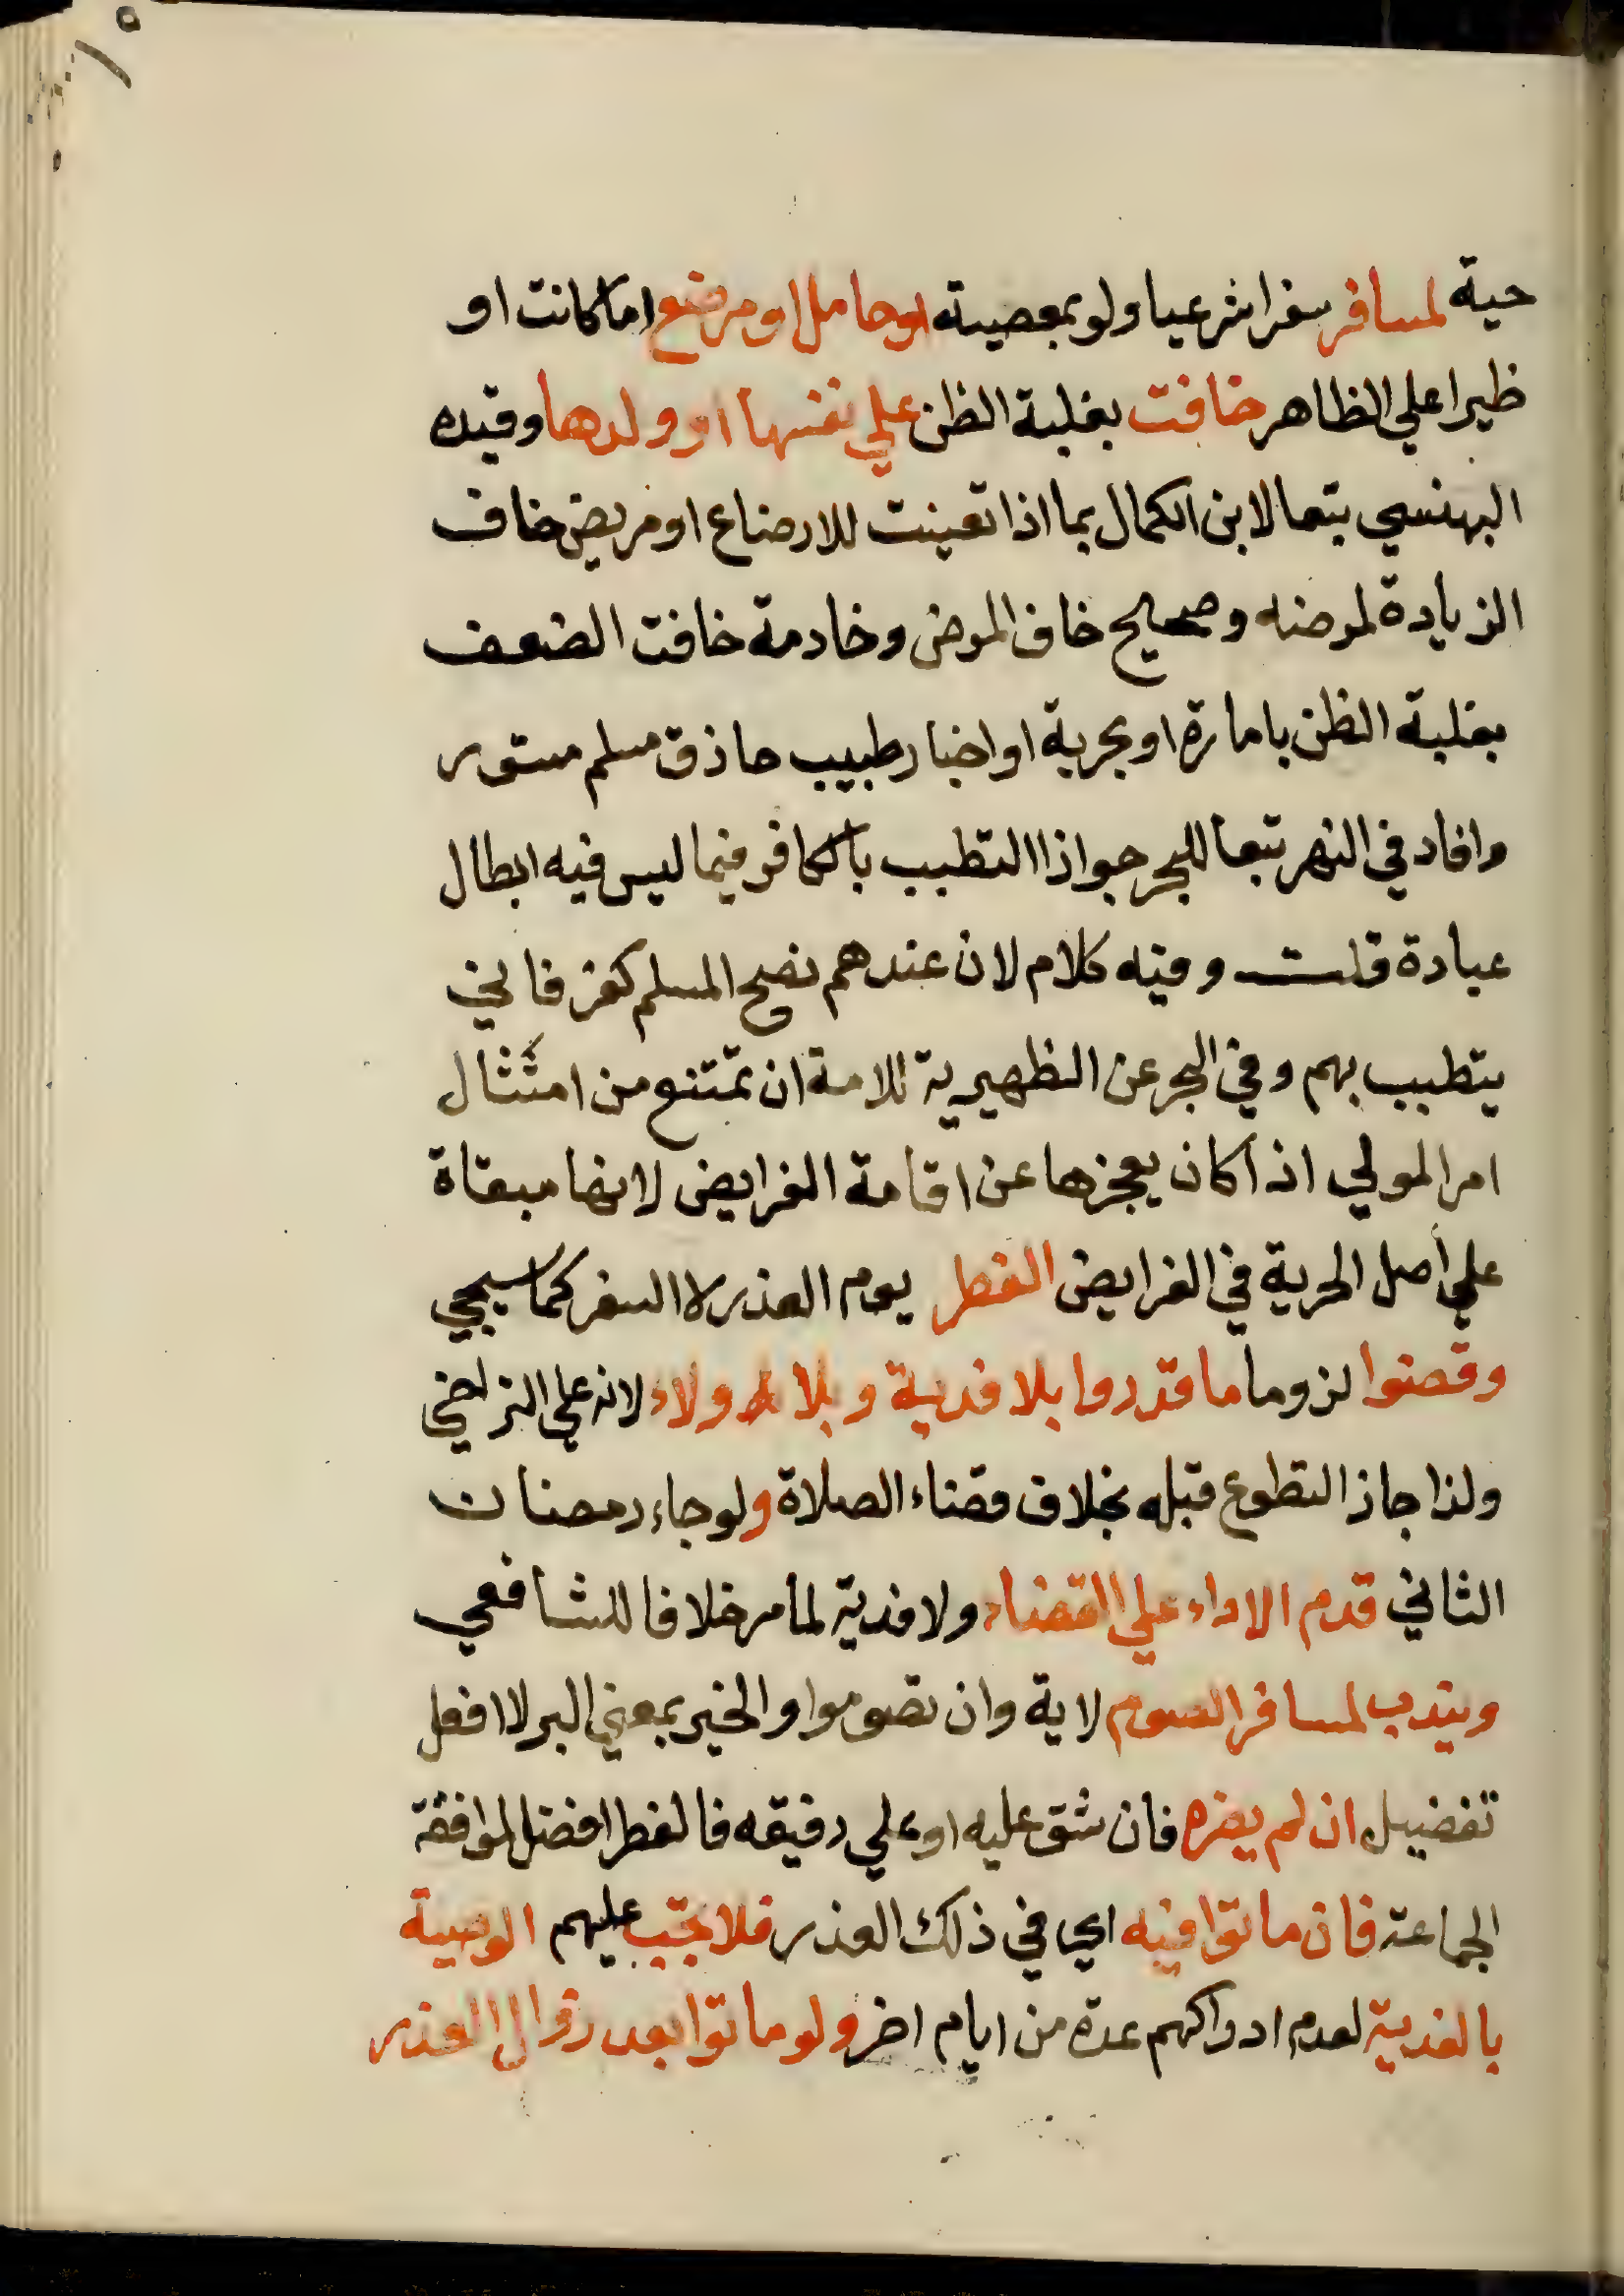 حية لمسافر سفرا شرعيا ولو بمعصية او حامل او مرضع اما كانت او
ظيرا علي الظاهر خافت بغلبة الظن علي نفسها او ولدها وقيده
البهنسي تبعا لابن الكمال بما اذا تعينت للارضاع او مريض خاف
الزيادة لمرضه وصحيح خاف المرض وخادمة خافت الضعف
بغلبة الظن بامارة او تجربة او اخبار طبيب حاذق مسلم مستور
وافاد في النهر تبعا للبحر جواز التطبب بالكافر فيما ليس فيه ابطال
عبادة قلت وفيه كلام لان عندهم نصح المسلم كفر فاني
يتطبب بهم وفي البحر عن الظهيرية للامة ان تمتنع من امتثال
امر المولي اذا كان يعجزها عن اقامة الفرايض لانها مبقاة
علي أصل الحرية في الفرايض الفطر يوم العذر لا السفر كما سيجي
وقضوا لزوما ما قدروا بلا فدية و بلا ولاء لانه علي التراخي
ولذا جاز التطوع قبله بخلاف قضاء الصلاة ولو جاء رمضان
الثاني قدم الاداء علي القضاء ولا فدية لما مر خلافا للشافعي
ويندب لمسافر الصوم لاية وان تصوموا والخير بمعني البر لا افعل
تفضيل ان لم يضره فان شق عليه او علي رفيقه فالفطر افضل لموافقة
الجماعة فان ماتوا فيه اي في ذلك العذر فلا تجب عليهم الوصية
بالفدية لعدم ادراكهم عدة من ايام اخر ولو ماتوا بعد زوال العذر